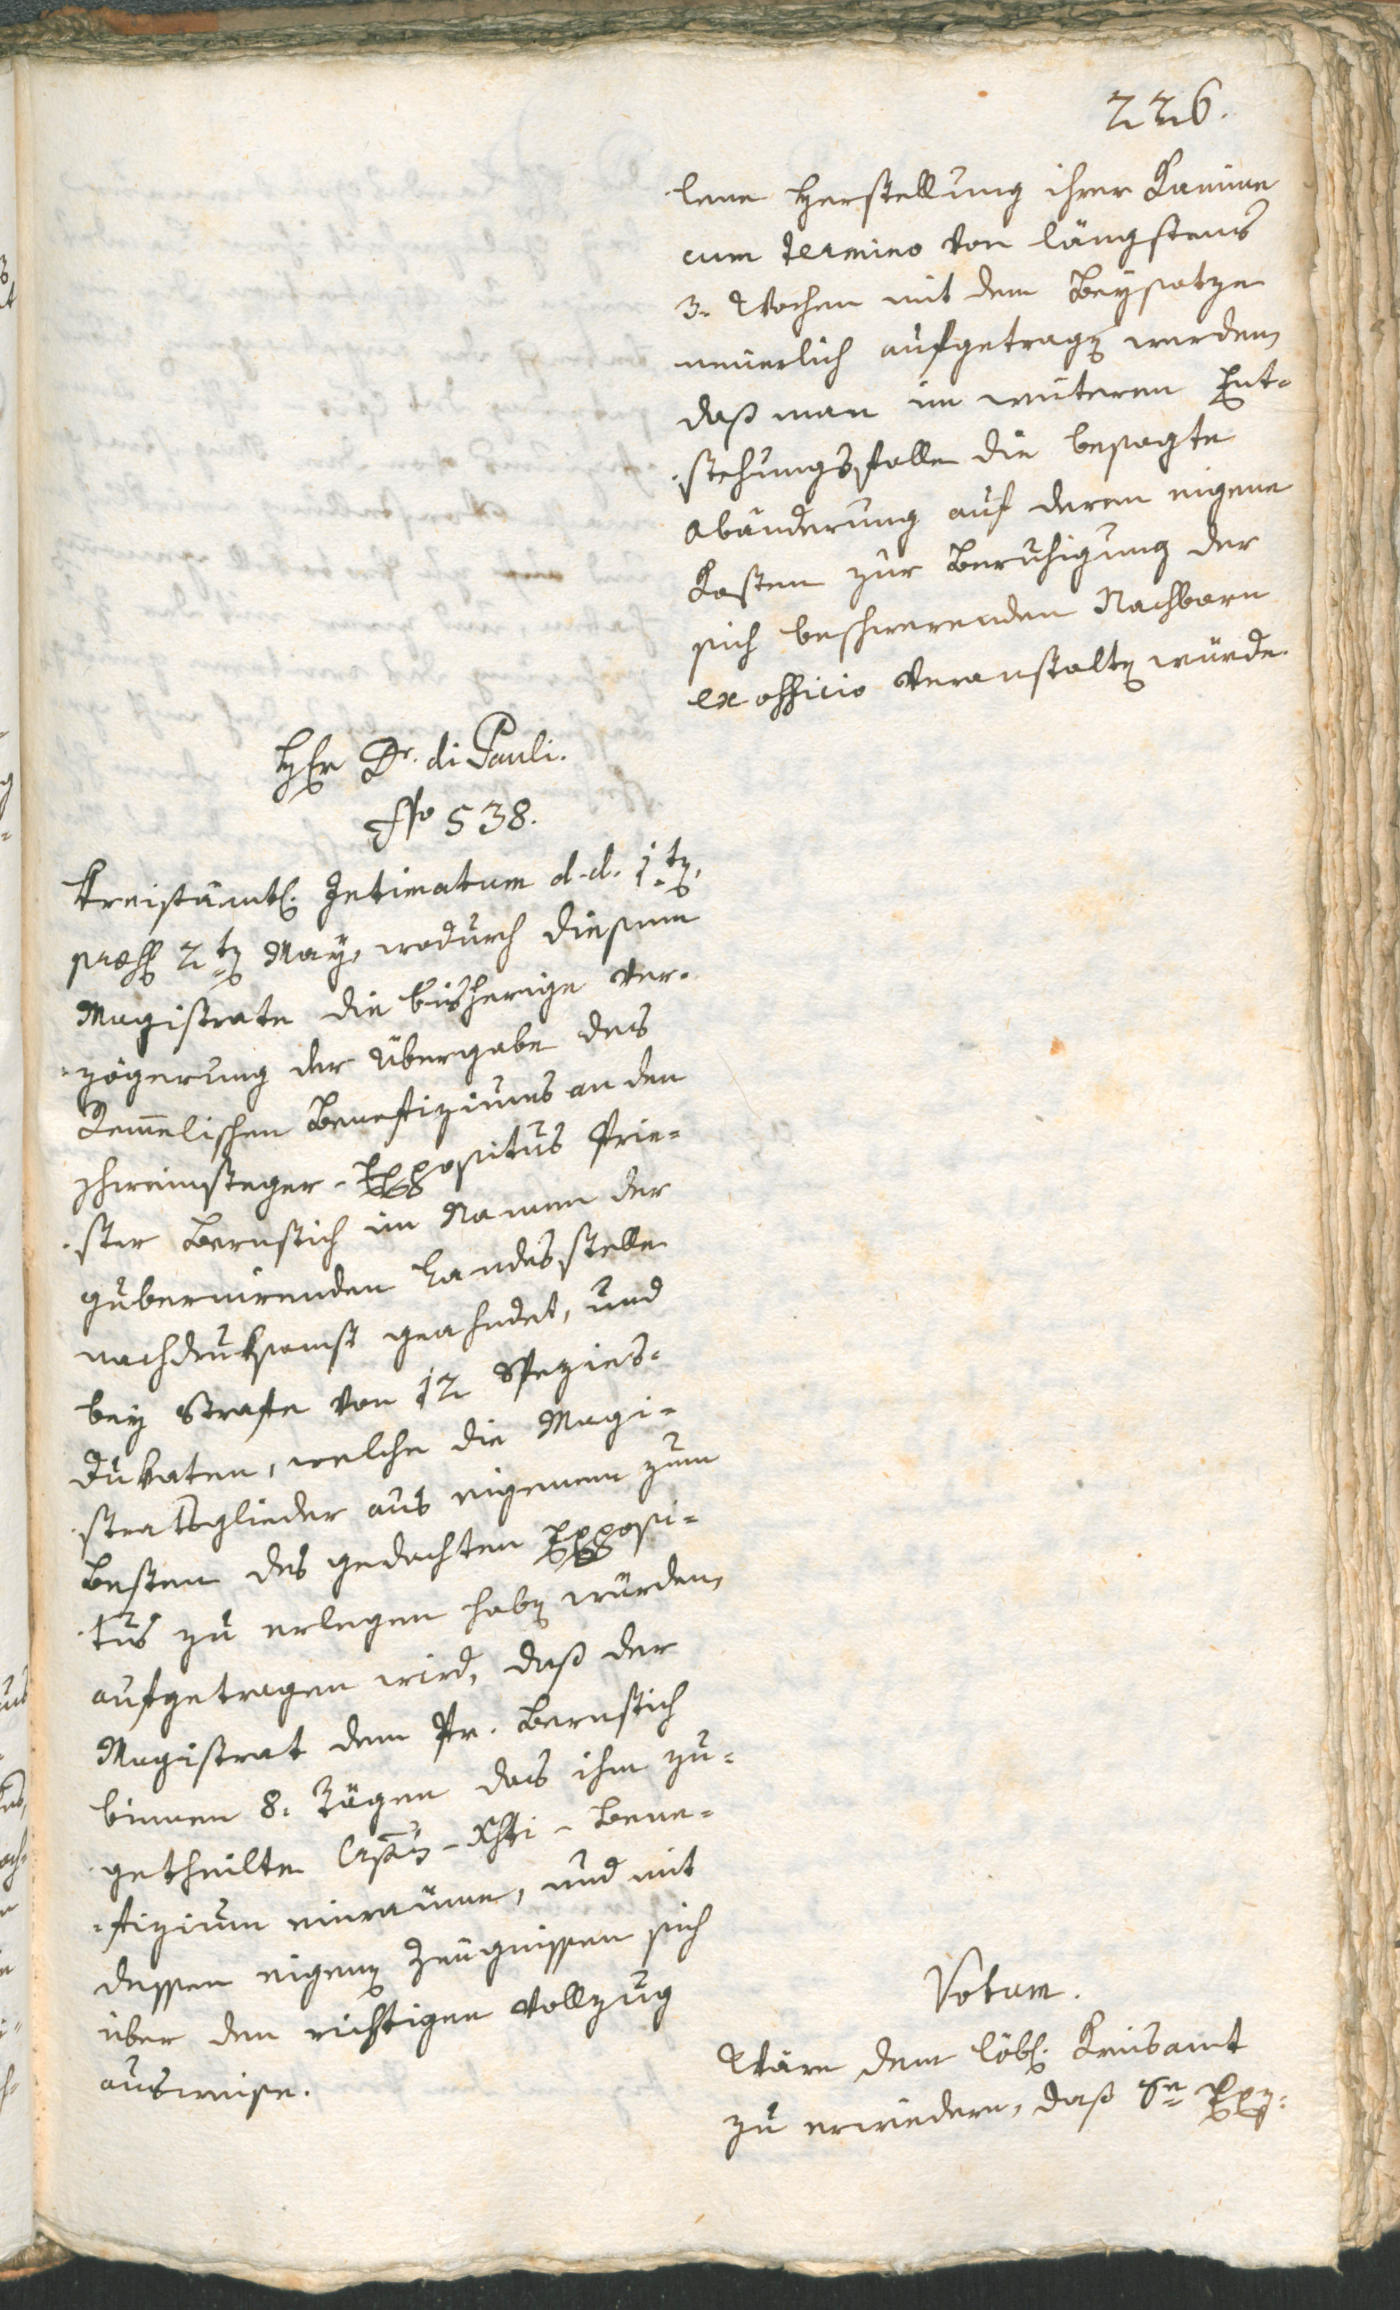 226.
lene Herstellung ihrer Kamine
cum termino von längstens
3. Wochen mit dem Beysatze
neuerlich aufgetragen werden,
daß man im weiteren Ent-
stehungsfalle die besagte
Abänderung auf deren eigene
Kosten zur Beruhigung der
sich beschwerenden Nachbarn
ex officio veranstalten würde.
Hr Dr. di Pauli.
No 538.
Kreisämtl. Intimatum d. d. 1ten
praes. 2ten May, wodurch diesem
Magistrate die bisherige Ver-
zögerung der Übergabe des
Kemelischen Benefiziums an den
Expositus Prie-
ster Bernstich im Namen der
gubernirenden Landesstelle
nachdruksamst geahndet, und
bey Strafe von 12 Spezies-
Dukaten, welche die Magi-
stratsglieder aus eigenem zum
Besten des gedachten Exposi-
tus zu erlegen haben würden,
aufgetragen wird, daß der
Magistrat dem Pr. Bernstich
binnen 8. Tägen das ihm zu-
getheilte Corporis-Xsti-Bene-
fizium einraume, und mit
dessen eigenen Zeugnissen sich
über den richtigen Vollzug
ausweise.
Votum.
Wäre dem löbl. Kreisamt
zu erwiedern, daß Se Exz-